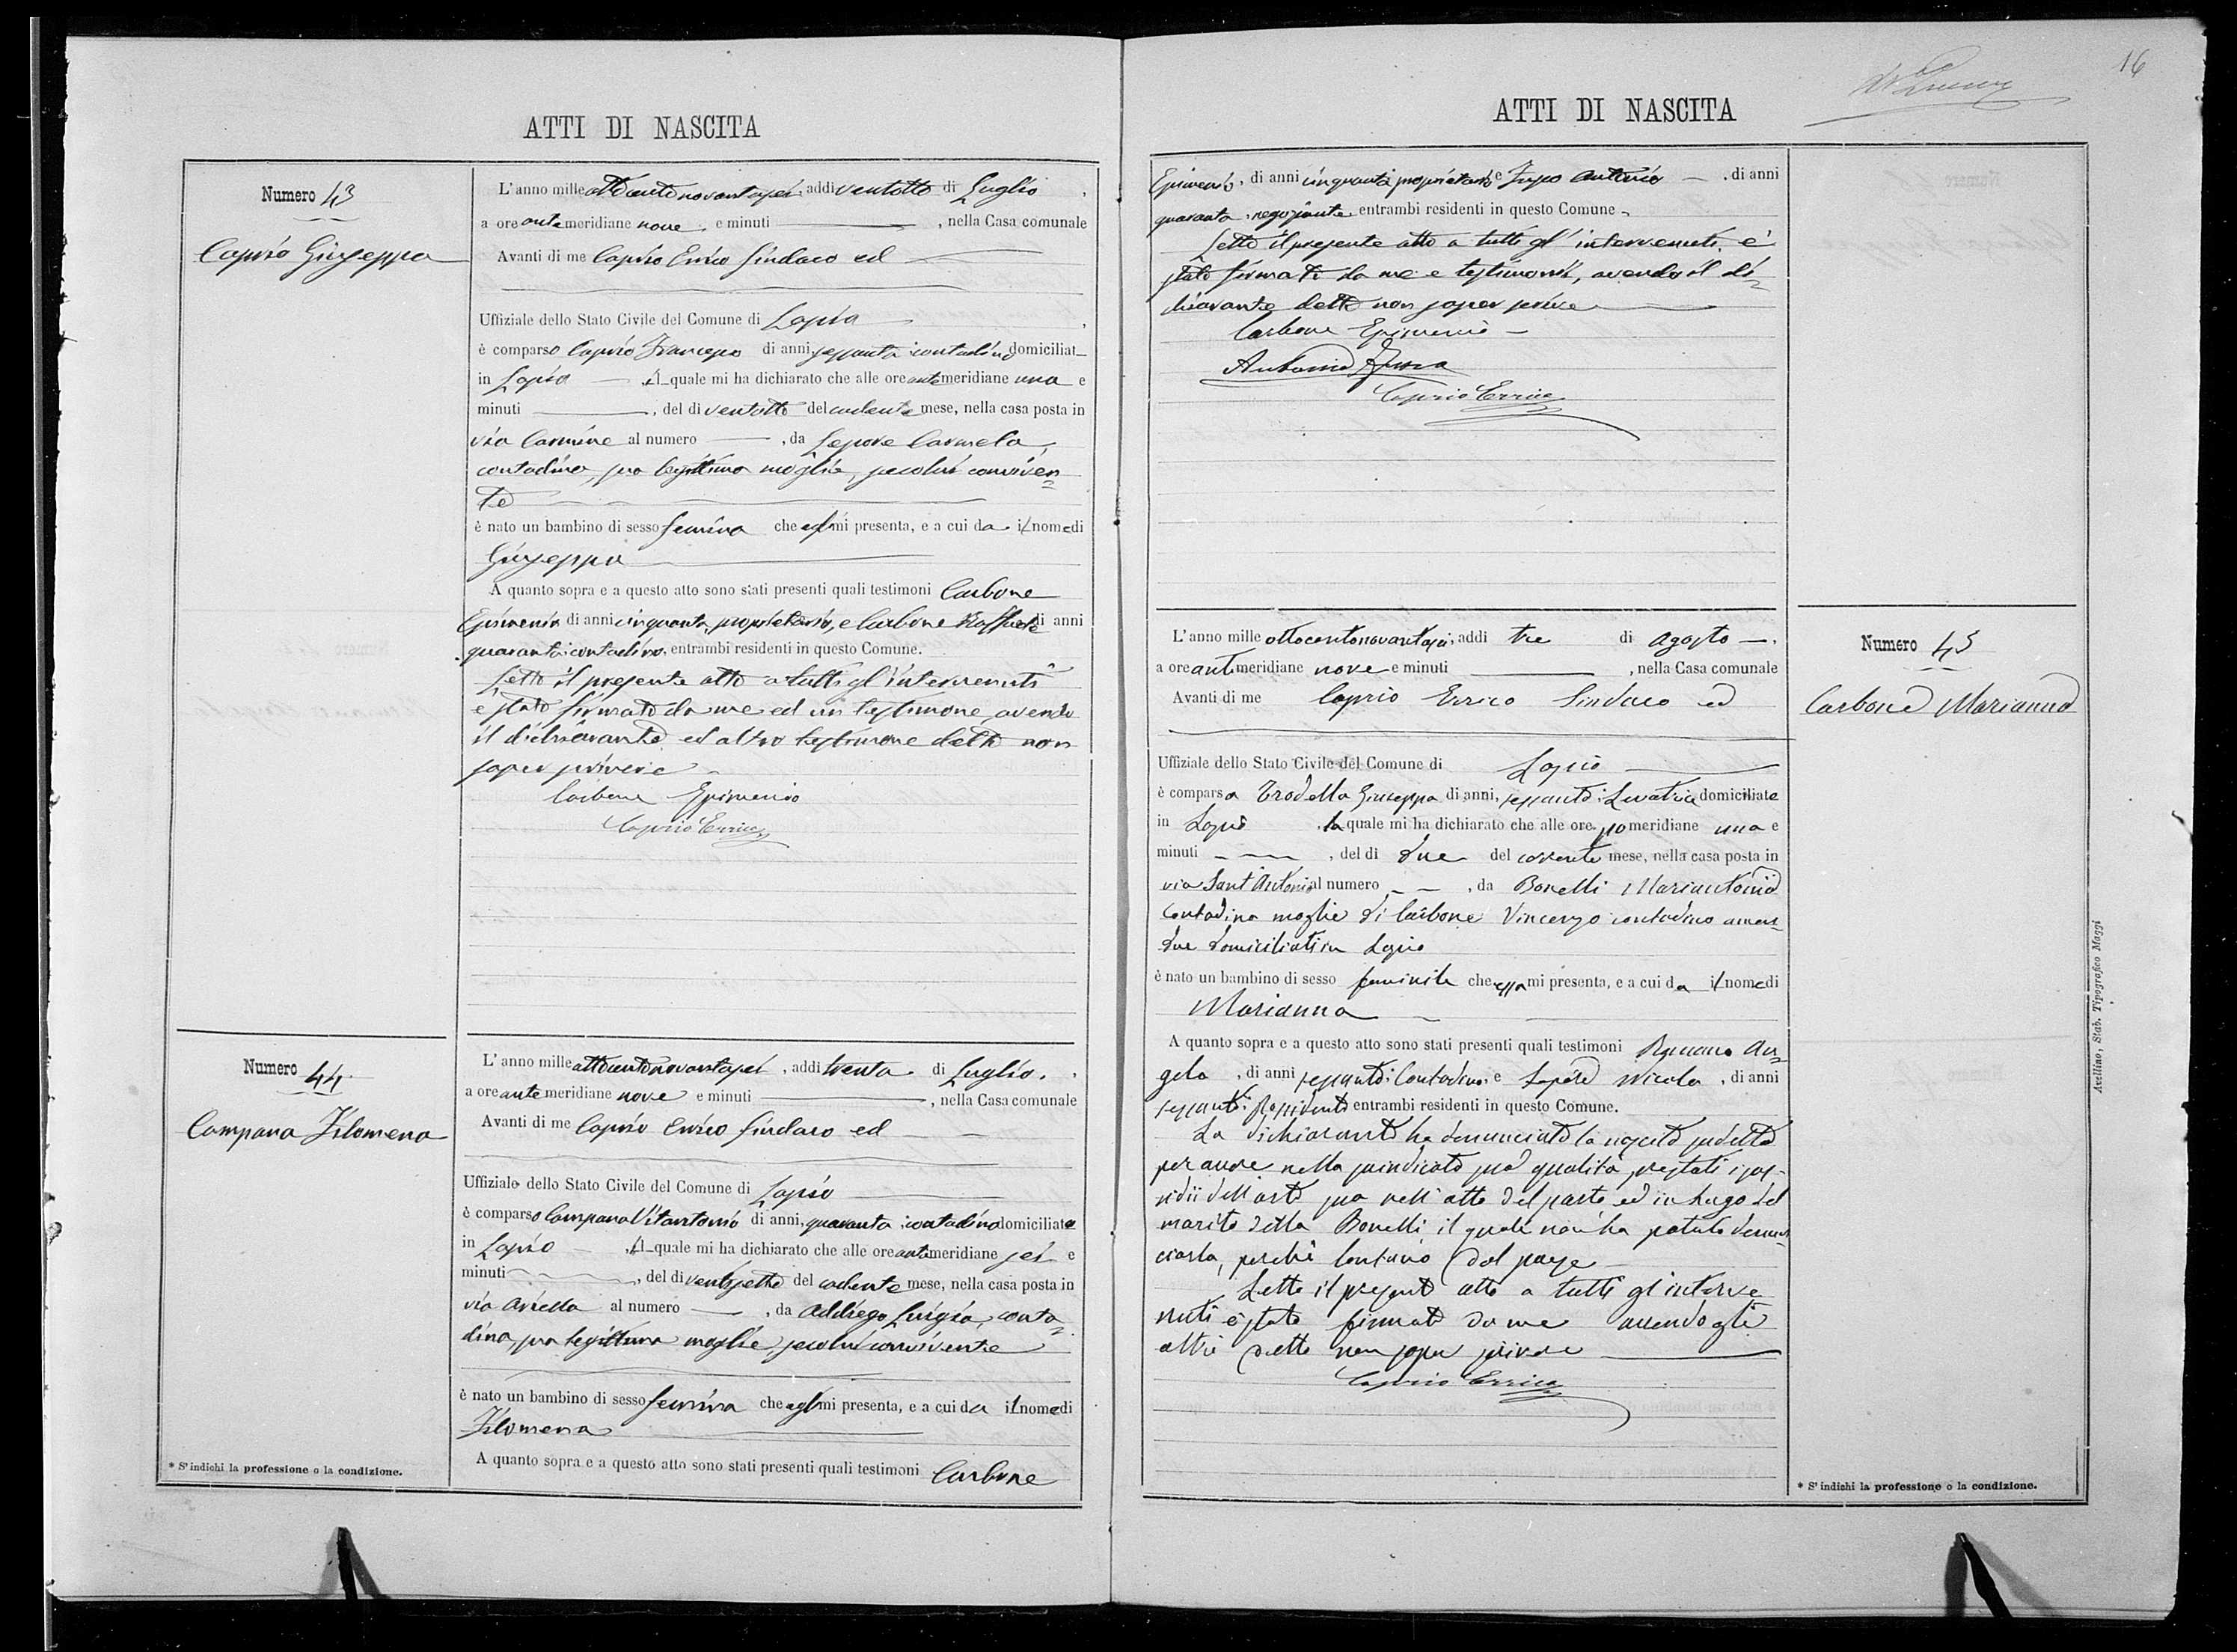 ATTI DI NASCITA
Numero 43
Caprio Giuseppa
L'anno mille ottocentonovantasei, addi ventotto di Luglio,
a ore antemeridiane nove, e minuti , nella Casa comunale
Avanti di me Caprio Errico Sindaco ed
Uffiziale dello Stato Civile del Comune di Lapio,
è comparso Caprio Francesco di anni sessanta contadino domiciliat
in Lapio il quale mi ha dichiarato che alle ore antemeridiane una e
minuti , del di ventotto del cadente mese, nella casa posta in
via Carmine al numero , da Lepore Carmela
contadina, sua legittima moglie, secolui conviven=
te
è nato un bambino di sesso femina che egli mi presenta, e a cui da il nome di
Giuseppa
A quanto sopra e a questo atto sono stati presenti quali testimoni Carbone
Epimenio di anni cinquanta, proprietario, e Carbone Raffaele di anni
quaranta, contadino, entrambi residenti in questo Comune.
Letto il presente atto a tutti gl'intervenuti
è stato firmato da me ed un testimone, avendo
il dichiarante ed altro testimone detto non
saper scrivere
Carbone Epimenio
Caprio Errico
Numero 44.
Campana Filomena
L'anno mille ottocentonovantasei, addi trenta di Luglio,
a ore antemeridiane nove e minuti , nella Casa comunale
Avanti di me Caprio Errico Sindaco ed
Uffiziale dello Stato Civile del Comune di Lapio
è comparso Campana Vitantonio di anni, quaranta, contadino domiciliato
in Lapio , il quale mi ha dichiarato che alle ore antemeridiane sei e
minuti , del di ventisette del cadente mese, nella casa posta in
via Ariella al numero , da Addiego Luigia, conta=
dina, sua legittima moglie, secolui convivente
è nato un bambino di sesso femina che egli mi presenta, e a cui da il nome di
Filomena
A quanto sopra e a questo atto sono stati presenti quali testimoni Carbone
* S'indichi la professione o la condizione.
16
ATTI DI NASCITA
Epimenio, di anni cinquanta proprietario e Zupo Antonio , di anni
quaranta, negoziante entrambi residenti in questo Comune
Letto il presente atto a tutti gl'intervenuti, è
stato firmato da me e testimoni, avendo il di=
chiarante detto non saper scrivere
Carbone Epimenio
Antonio
Caprio Errico
L'anno mille ottocentonovantasei, addi tre di Agosto,
a ore antimeridiane nove e minuti , nella Casa comunale
Avanti di me Caprio Errico Sindaco ed
Uffiziale dello Stato Civile del Comune di Lapio
è comparsa Trodella Giuseppa di anni, sessanta; Levatrice domiciliata
in Lapio, la quale mi ha dichiarato che alle ore pomeridiane una e
minuti , del di due del corrente mese, nella casa posta in
via Sant'Antonio al numero , da Bonelli Mariantonia
Contadina moglie di Carbone Vincenzo contadino amen=
due domiciliati in Lapio
è nato un bambino di sesso feminile che essa mi presenta, e a cui da il nome di
Marianna
A quanto sopra e a questo atto sono stati presenti quali testimoni Romano An=
gelo, di anni sessanta; Contadino, e Nicola, di anni
sessanta; entrambi residenti in questo Comune.
La dichiarante ha denunciato la nascita sudetta
per avere nella suindicata sua qualità prestati i sus-
sidii dell'arte sua nell'atto del parto ed in luogo del
marito della Bonelli il quale non ha potuto denun=
ciarla, perchè lontano dal paese
Letto il presente atto a tutti gl'interve
nuti è stato firmato da me avendo gli
altri detto non saper scrivere
Caprio Errico
Numero 45
Carbone Marianna
Avellino, Stab. Tipografico Maggi
* S'indichi la professione o la condizione.